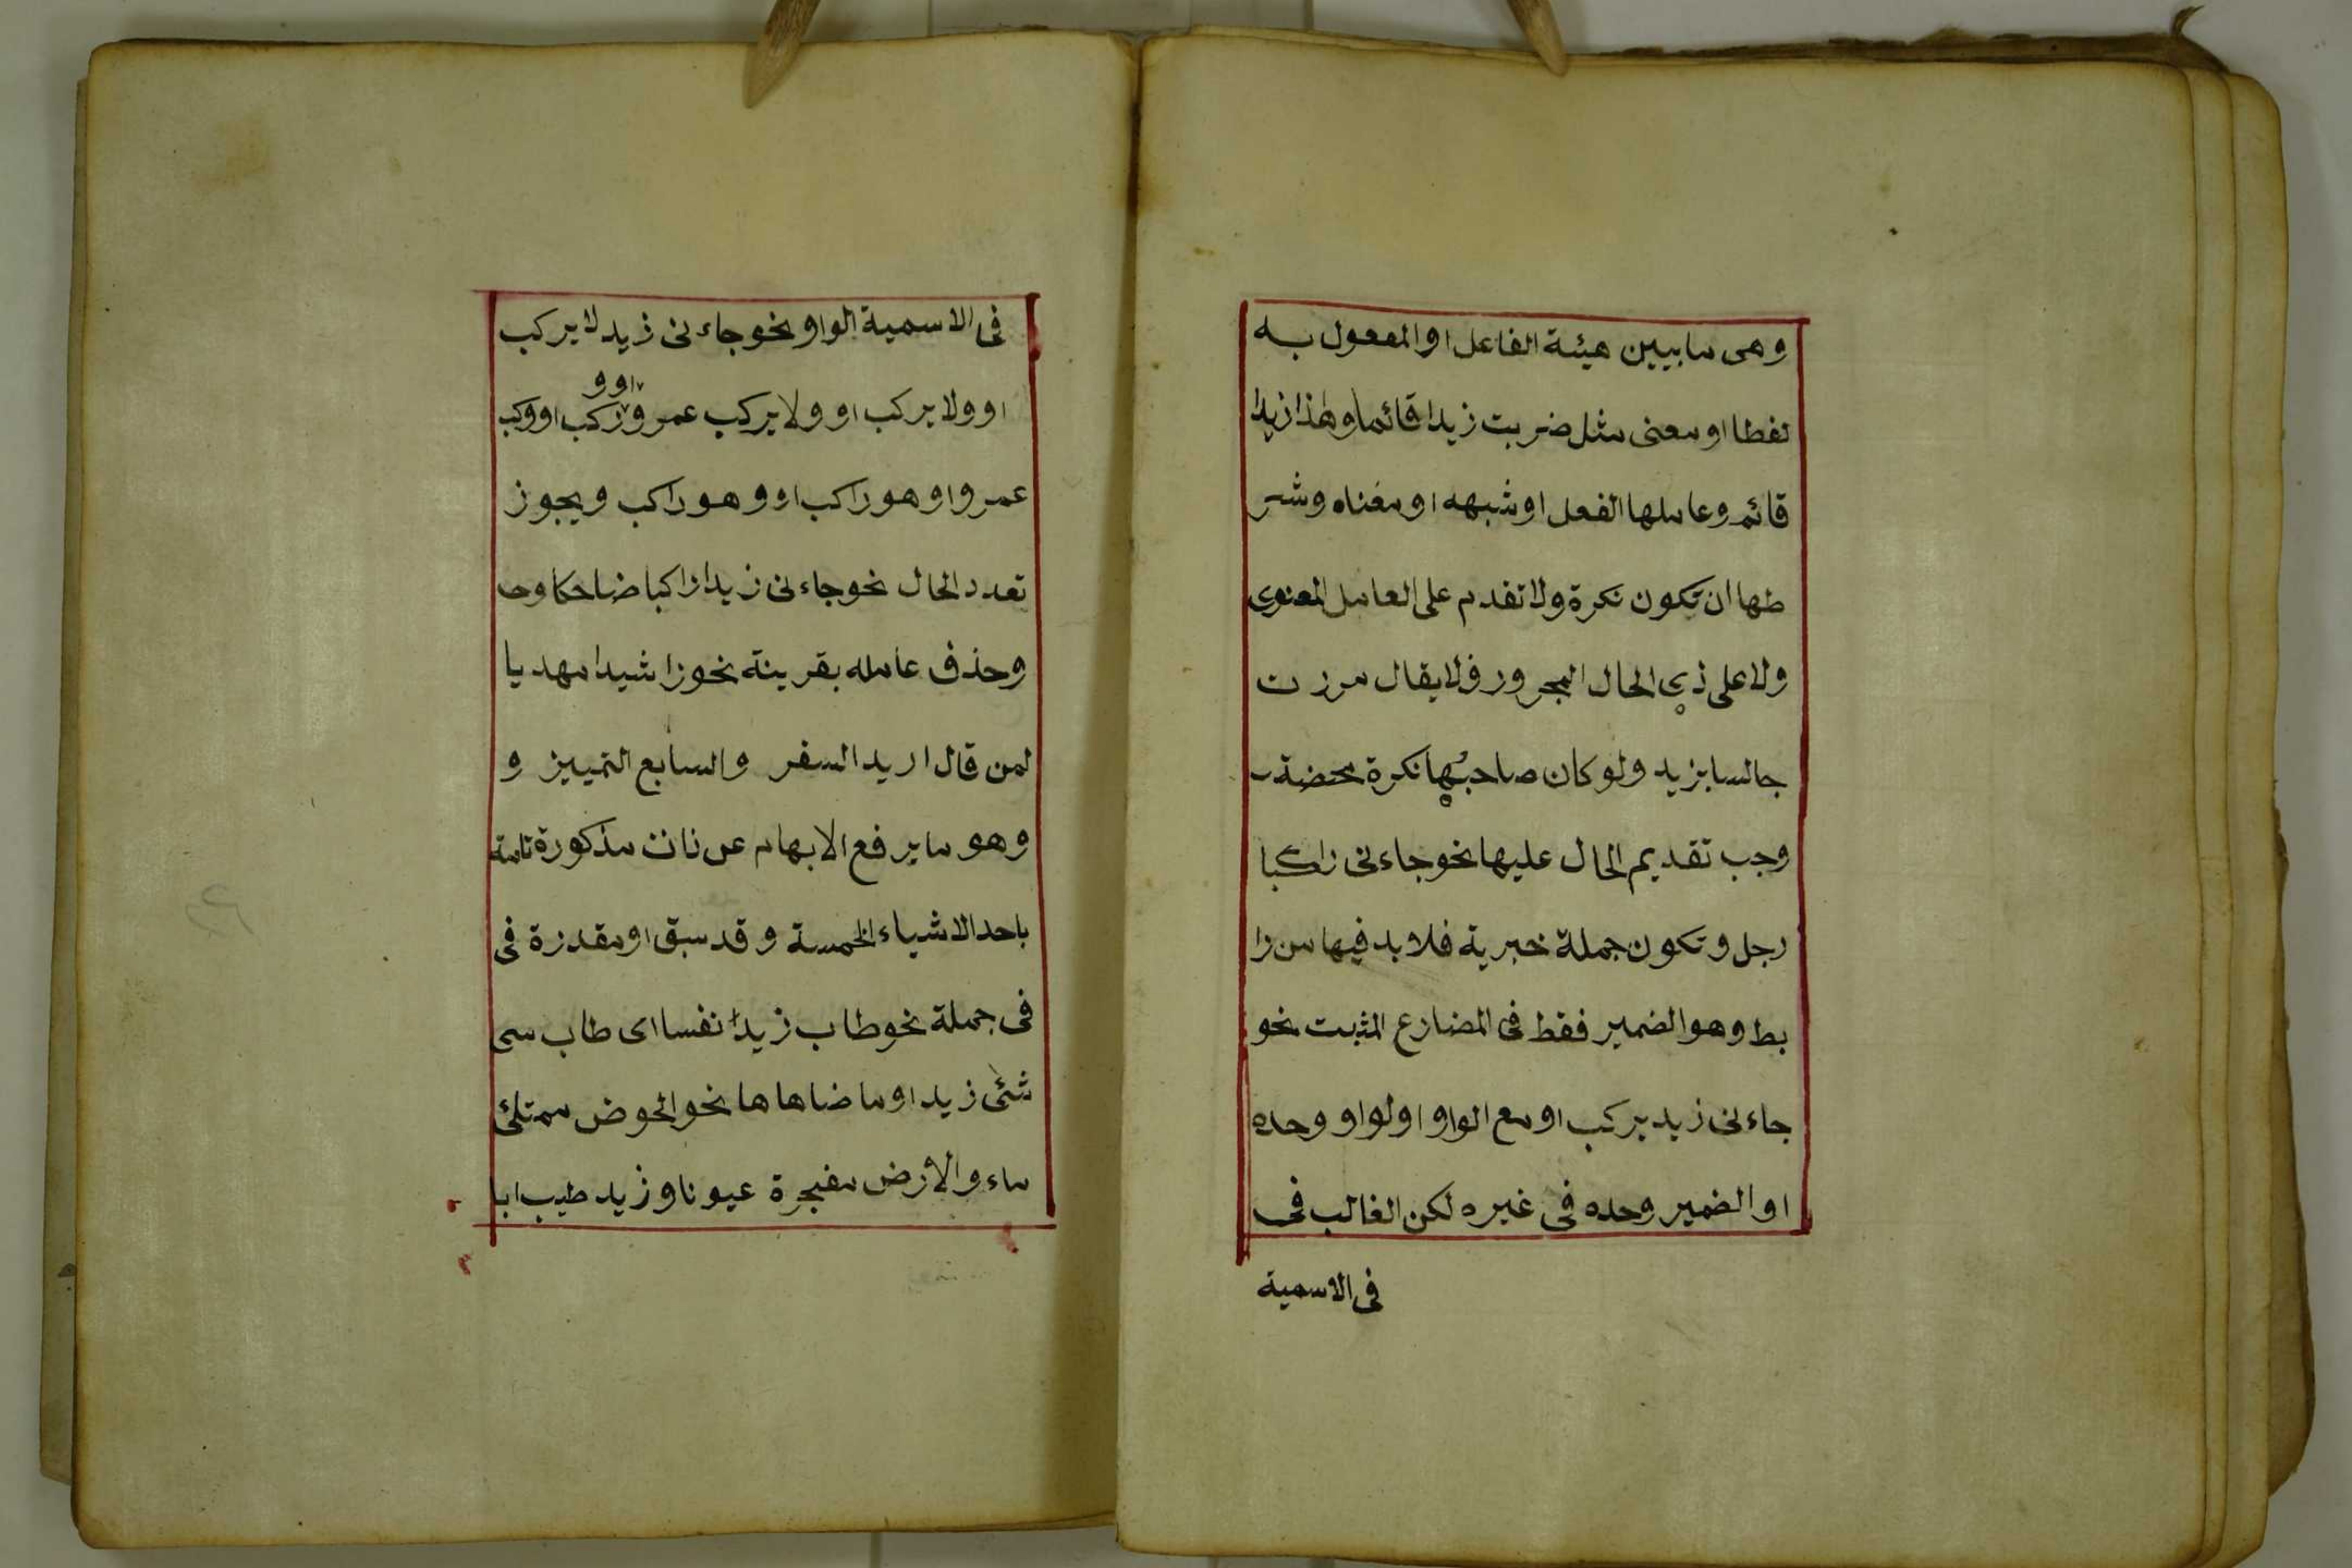 وهى ما يبين هيئة الفاعل او المفعول به
لفظا او معنى مثل ضربت زيدا قائما وهذا زيدا
قائم وعاملها الفعل او شبهه او معناه وشر
طها ان تكون نكرة ولا تقدم على العامل المعنوى
ولا على ذي الحال المجرور فلا يقال مررت
جالسا بزيد ولو كان صاحبها نكرة محضة
وجب تقديم الحال عليها نحو جاءنى راكبا
رجل وتكون جملة خبرية فلا بد فيها من را
بط وهو الضمير فقط فى المضارع المثبت نحو
جاءنى زيد يركب او مع الواو او لواو وحده
او الضمير وحده فى غيره لكن الغالب فى
فى الاسمية
فى الاسمية الواو نحو جاءنى زيد لا يركب
او ولا يركب او ولا يركب عمرو ركب او وركب
او و
عمرو او هو راكب او وهو راكب ويجوز
تعدد الحال نحو جاءنى زيدا راكبا ضاحكا وحـ
وحذف عامله بقرينة نحو راشيدا مهديا
لمن قال اريد السفر والسابع التمييز و
وهو ما يرفع الابهام عن ذات مذكورة تامة
باحد الاشياء الخمسة وقد سبق او مقدرة فى
فى جملة نحو طاب زيدا نفسا اى طاب سى
شئى زيد او ما ضاهاها نحو الحوض ممتلئ
ماء والأرض مفجرة عيونا وزيد طيب ابا